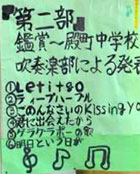 第二部
鑑賞〜殿町中学校
吹奏楽部による発表
①Let it go
②ディープパープル
③そんなさいのKissing you
④君に出会えたから
⑤ゲラゲラポーの歌
⑥明日という日が